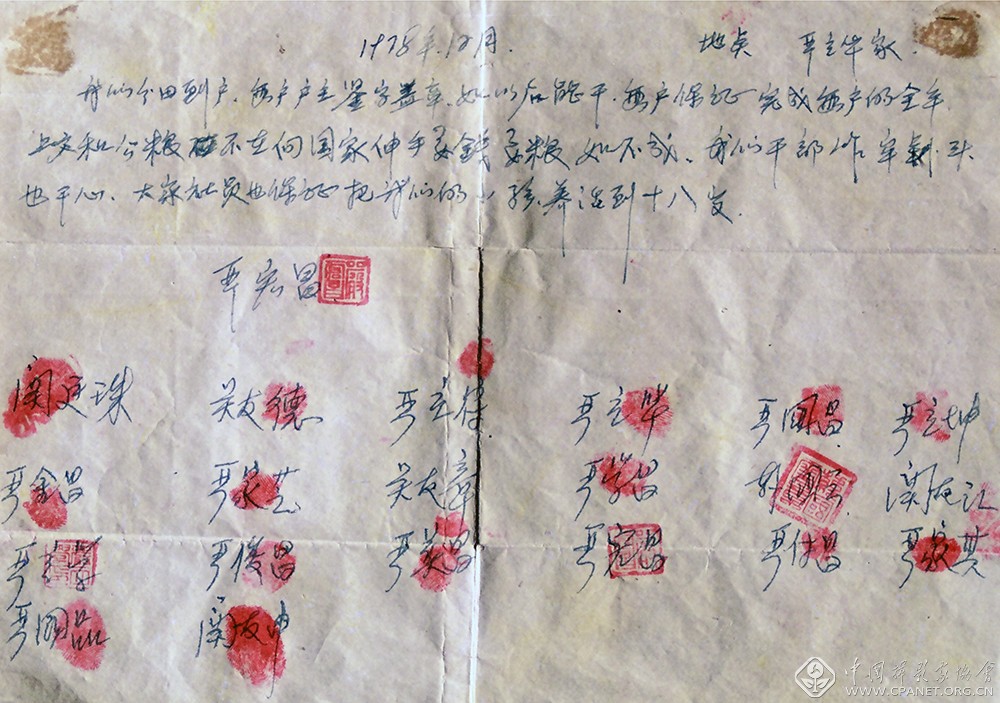 1978年12月. 地点 严立华家.
我们分田到户.每户户主鉴字盖章.如以后能干.每户保证完成每户的全年
上交和公粮 不在向国家伸手要钱要粮 如不成.我们干部作牢 头
也干心.大家社员也保证把我们的小孩养活到十八岁.
严宏昌
关廷珠 关友德 严立符 严立华 严国昌 严立坤
严金昌 严家芝 关友章 严学昌 韩国云 关友江
严立学 严俊昌 严美昌 严宏昌 严付昌 严家其
严国品 关友坤
中国摄影家协会
WWW.CPANET.ORG.CN